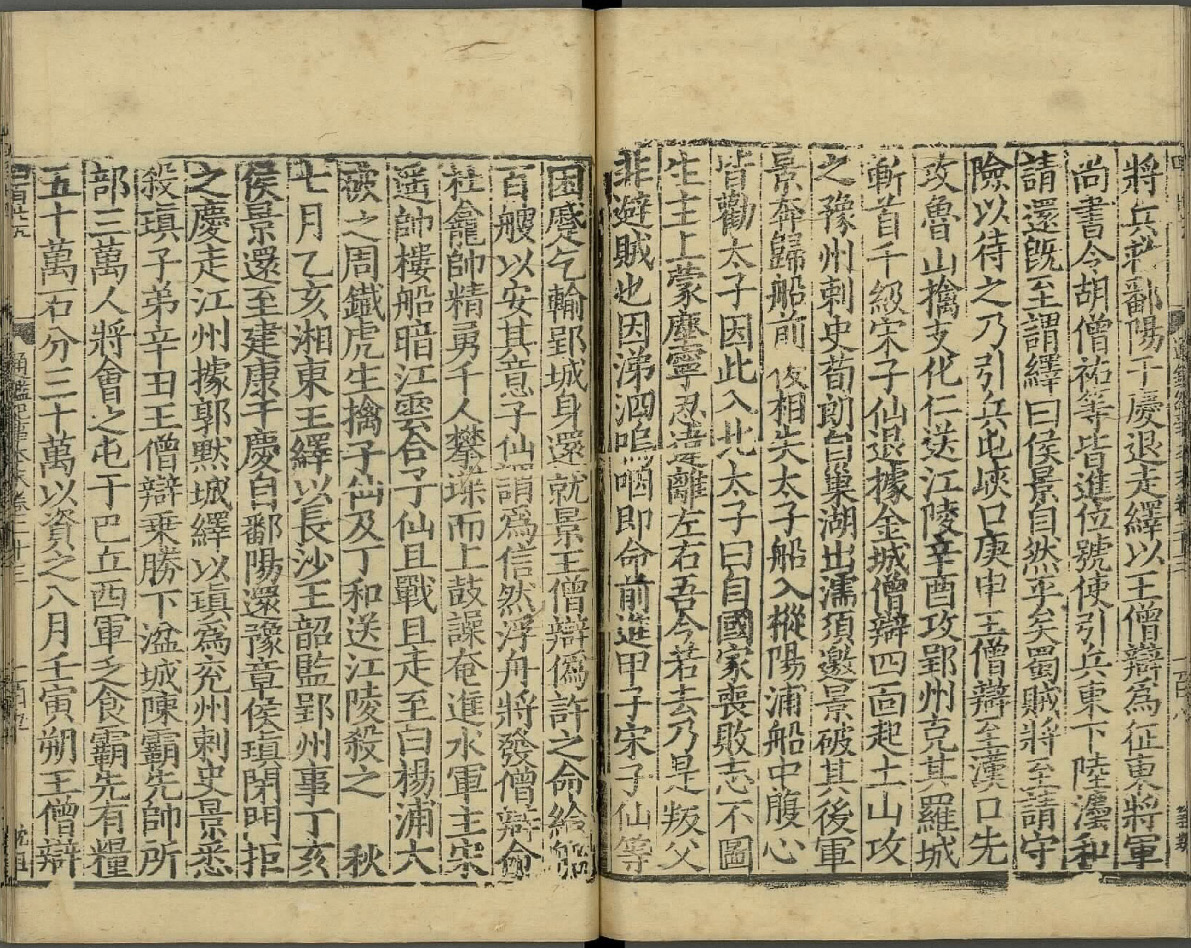 將兵救鄱陽于慶退走繹以王僧辯為征東將軍
尚書令胡僧祐等皆進位號使引兵東下陸灋和
請還旣至謂繹曰侯景自然平矣蜀賊將至請守
險以待之乃引兵屯峽口庚申王僧辯至漢口先
攻魯山擒支化仁送江陵辛酉攻郢州克其羅城
斬首千級宋子仙退據金城僧辯四面起土山攻
之豫州刺史荀朗自巢湖出濡須邀景破其後軍
景奔歸船前後相失太子船入樅陽浦船中腹心
皆勸太子因此入北太子曰自國家喪敗志不圖
生主上蒙塵寧忍違離左右吾今若去乃是叛父
非避賊也因涕泗嗚咽即命前進甲子宋子仙等
困蹙乞輸郢城身還就景王僧辯偽許之命給船
百艘以安其意子仙謂為信然浮舟將發僧辯命
杜龕帥精勇千人攀堞而上鼓譟奄進水軍主宋
遥帥樓船暗江雲合子仙且戰且走至白楊浦大
破之周鐵虎生擒子仙及丁和送江陵殺之 秋
七月乙亥湘東王繹以長沙王韶監郢州事丁亥
侯景還至建康于慶自鄱陽還豫章侯瑱閉門拒
之慶走江州據郭默城繹以瑱為兖州刺史景悉
殺瑱子弟辛丑王僧辯乗勝下湓城陳霸先帥所
部三萬人將會之屯于巴丘西軍乏食霸先有糧
五十萬石分三十萬以資之八月壬寅朔王僧辯
通鑑紀事本末卷二十三